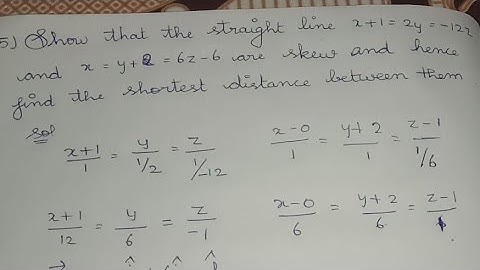 5) Show that the straight line x+1 = 2y = -12z
and x = y+2 = 6z-6 are skew and hence
find the shortest distance between them
Sol
x+1/1 = y/1/2 = z/1/-12    x-0/1 = y+2/1 = z-1/1/6
x+1/12 = y/6 = z/-1    x-0/6 = y+2/6 = z-1/1